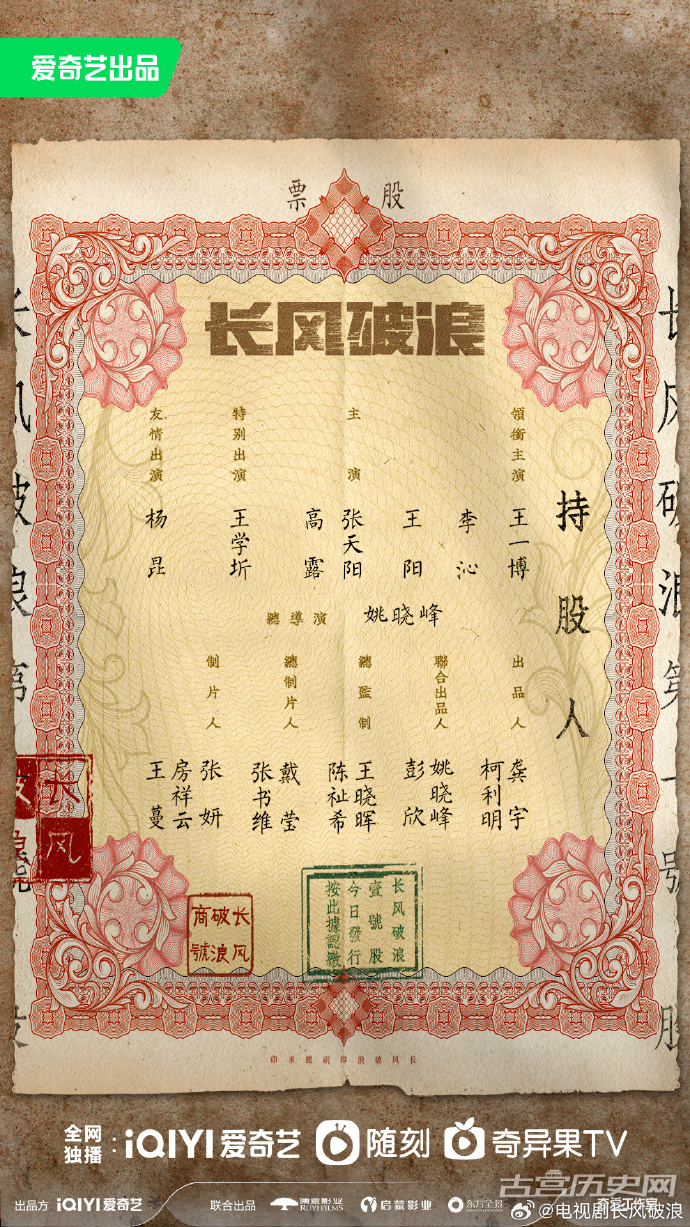 爱奇艺出品
股票
长风破浪
领衔主演
王一博
李沁
王阳
主演
张天阳
高露
特别出演
王学圻
友情出演
杨昆
持股人
總導演 姚晓峰
出品人
龚宇
柯利明
聯合出品人
姚晓峰
彭欣
總監制
王晓晖
陈祉希
總制片人
戴莹
张书维
制片人
张妍
房祥云
王蔓
长风破浪第一號
股
长风破浪
长风破浪商號
长风破浪
壹號股
今日發行
按此據認繳
长风破浪印刷館承印
全网独播：iQIYI爱奇艺 随刻 奇异果TV
出品方 iQIYI爱奇艺 联合出品 儒意影业 RUYI FILMS 启蒙影业 东方全景 奇宴工作室
古宫历史网
@电视剧长风破浪